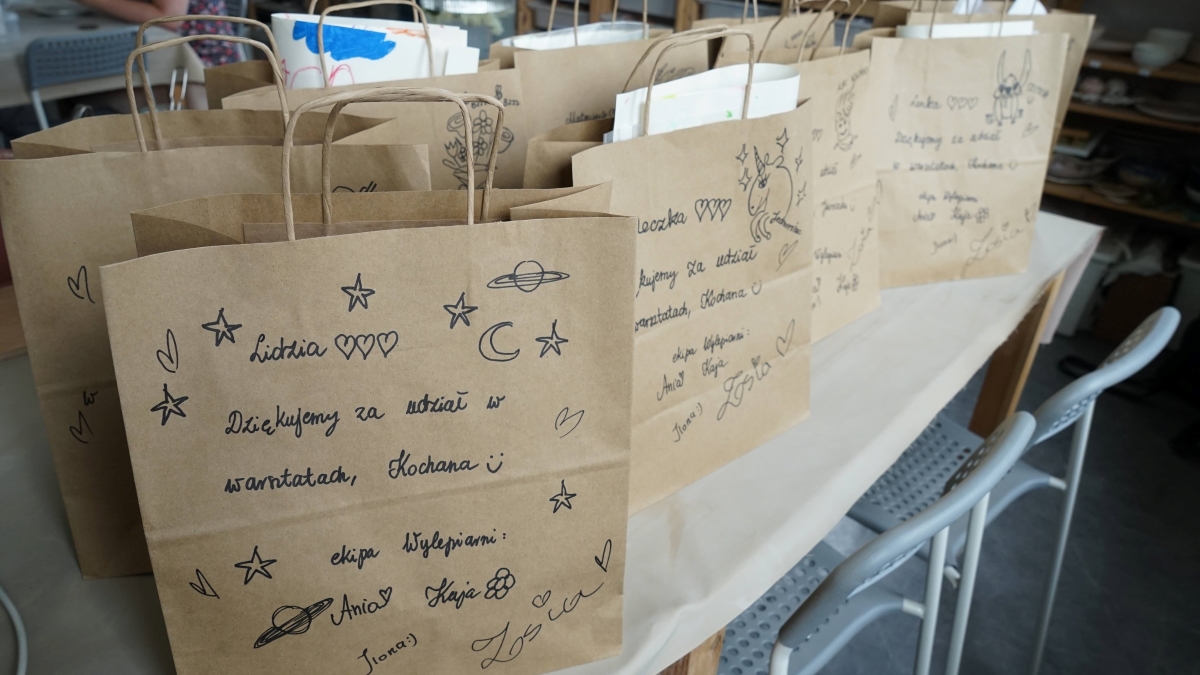 Lidzia
Dziękujemy za udział w
warsztatach, Kochana
ekipa Wylepiarni:
Ania Kaja
Ilona:)
Zosia
eczka
kujemy za udział
warsztatach, Kochana
ekipa Wylepiarni:
Ania Kaja
Ilona:)
Zosia
Lenka
Dziękujemy za udział
w warsztatach, Kochana
ekipa Wylepiarni
Ania Kaja
Zosia